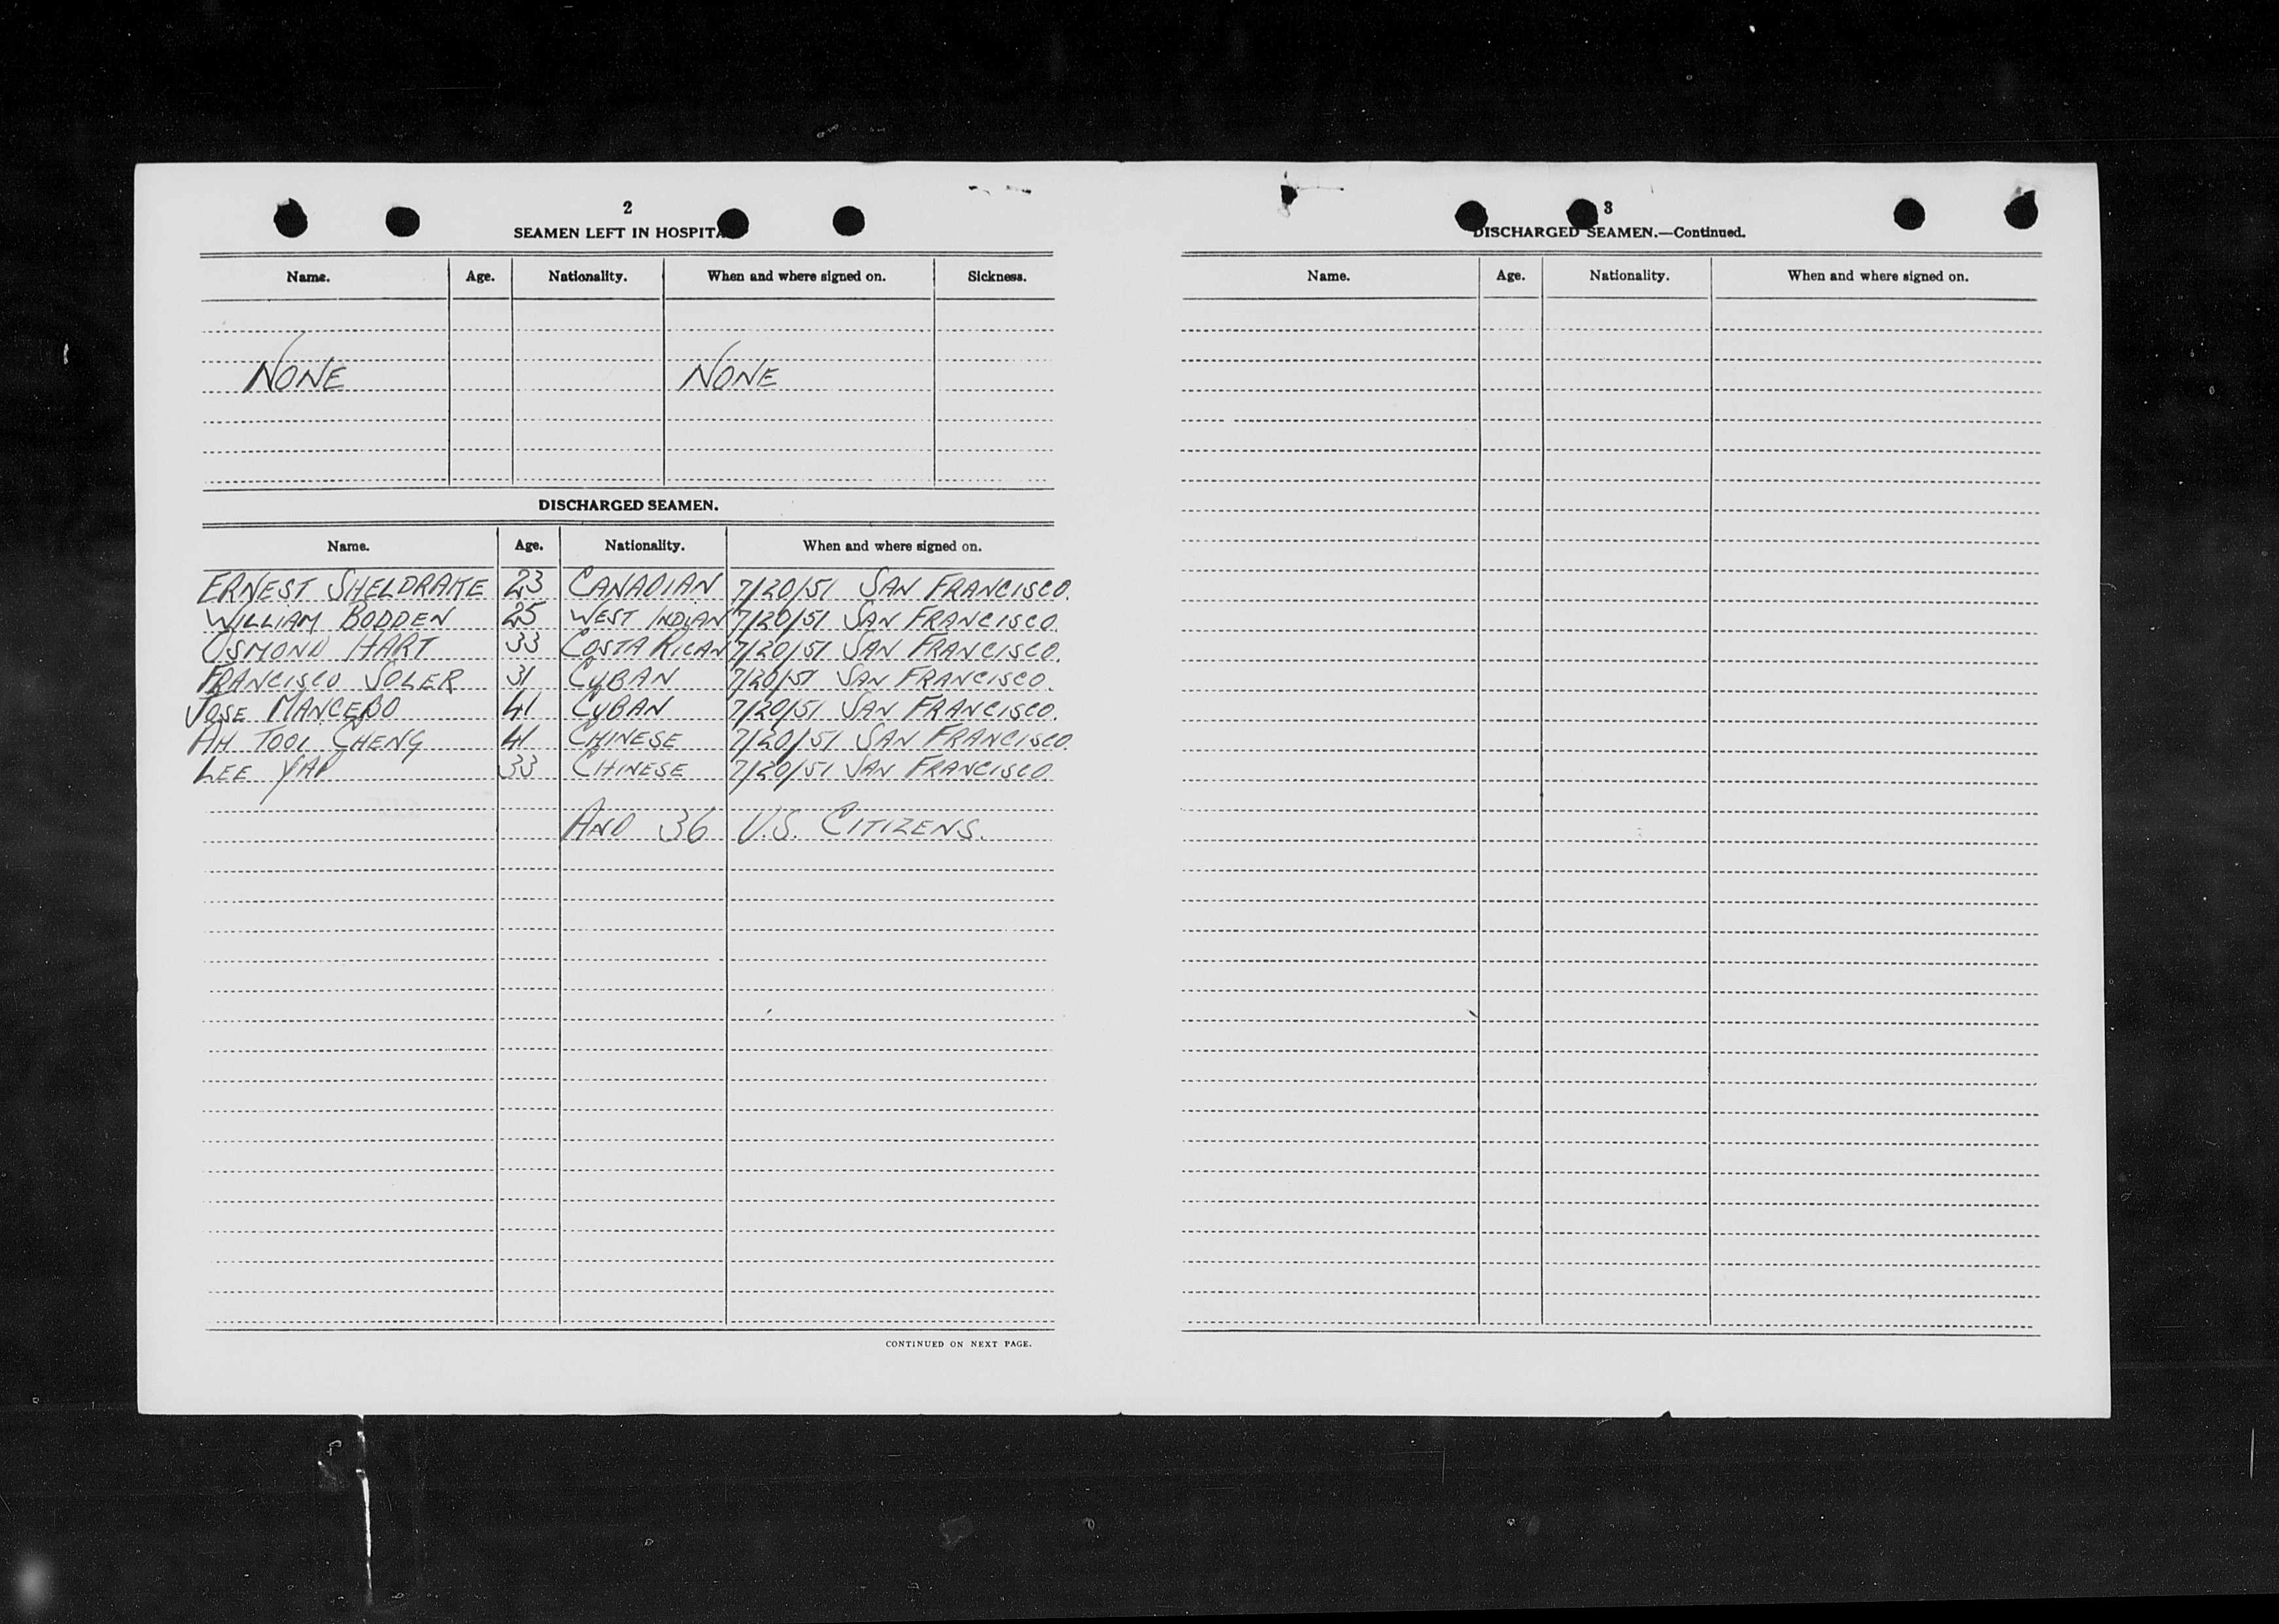 2
SEAMEN LEFT IN HOSPITA
Name. Age. Nationality. When and where signed on. Sickness.
NONE NONE
DISCHARGED SEAMEN.
Name. Age. Nationality. When and where signed on.
ERNEST SHELDRAKE 23 CANADIAN 7/20/51 SAN FRANCISCO.
WILLIAM BODDEN 25 WEST INDIAN 7/20/51 SAN FRANCISCO.
OSMOND HART 33 COSTA RICAN 7/20/51 SAN FRANCISCO.
FRANCISCO SOLER 31 CUBAN 7/20/51 SAN FRANCISCO.
JOSE MANCEBO 41 CUBAN 7/20/51 SAN FRANCISCO.
AH TOOI CHENG 41 CHINESE 7/20/51 SAN FRANCISCO.
LEE YAP 33 CHINESE 7/20/51 SAN FRANCISCO.
AND 36 U.S. CITIZENS.
CONTINUED ON NEXT PAGE.
3
DISCHARGED SEAMEN.—Continued.
Name. Age. Nationality. When and where signed on.